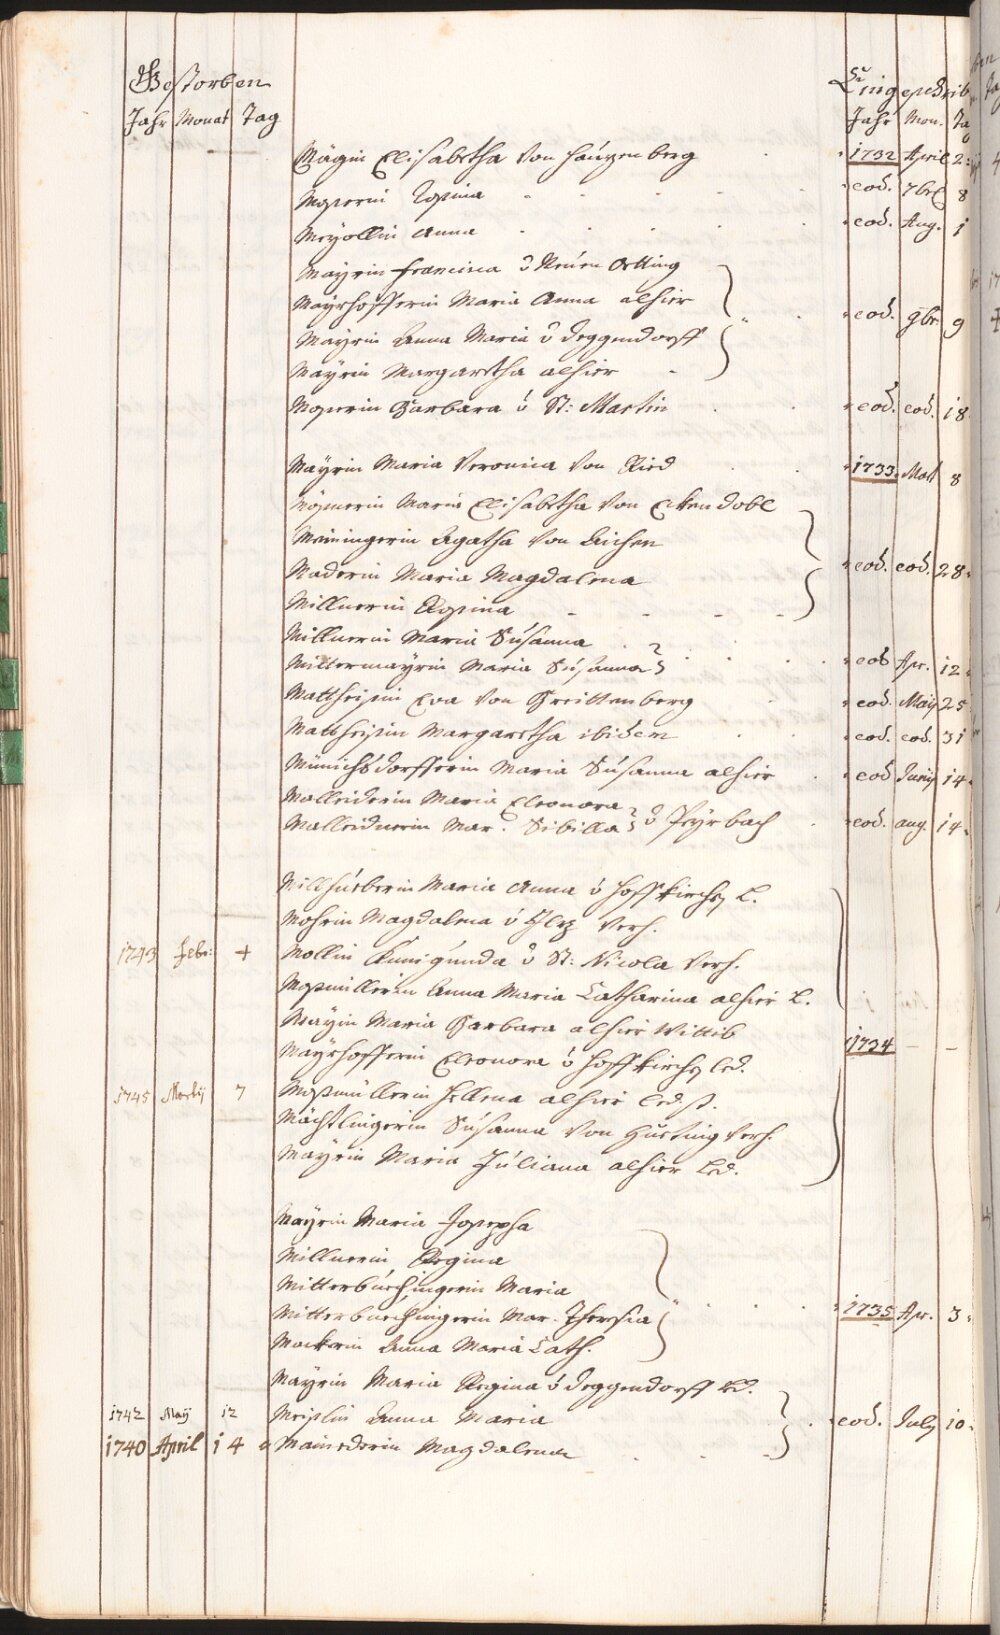 Gestorben Eingeschrib
Jahr Monat Tag Jahr Mon. Ta
Mägin Elisabetha von Hauzenberg 1732 April 2
Moserin Rosina eod. 7br 8
Mayollin Anna eod. Aug. 1
Mayrin Francisca v Neuen Oetting
Mayrhofferin Maria Anna alhier
Mayrin Anna Maria v Deggendorff eod. 9br 9
Mayrin Margaretha alhier
Moserin Barbara v St: Martin eod. eod. 18
Mayrin Maria Veronica von Ried 1733 Mart 8
Maria Elisabetha von Eckendobl
Meiningerin Agatha von Aichen
Maderin Maria Magdalena eod. eod. 28
Millnerin Regina
Millnerin Maria Susanna
Mittermayrin Maria Susanna eod Apr. 12
Matthesin Eva von Breittenberg eod. May 25
Matthesin Margaretha ibidem eod. eod. 31
Münichsdorfferin Maria Susanna alhier eod Junij 14
Malleiderin Maria Eleonora
Malleidnerin Mar. Sibilla v Peyrbach eod. aug. 14
Millhueberin Maria Anna v Hoffkirchen l.
Mohrin Magdalena v Ilz verh.
1743 Febr: 4 Mollin Kunigunda v St: Nicola verh.
Mosmillerin Anna Maria Catharina alhier l.
Mayin Maria Barbara alhier Wittib 1734 – –
Mayrhofferin Eleonora v Hoffkirchen led.
1745 Martij 7 Mosmüllerin Hellena alhier led.
Mächtlingerin Susanna von verh.
Mayrin Maria Juliana alhier led.
Mayrin Maria Josepha
Millnerin Regina
Mitterbuechingerin Maria
Mitterbuechingerin Mar. Theresia 1735 Apr. 3
Mockin Anna Maria Cath.
Mayrin Maria Regina v Deggendorff led.
1742 Maij 12 Anna Maria eod. July 10
1740 April 14 Magdalena